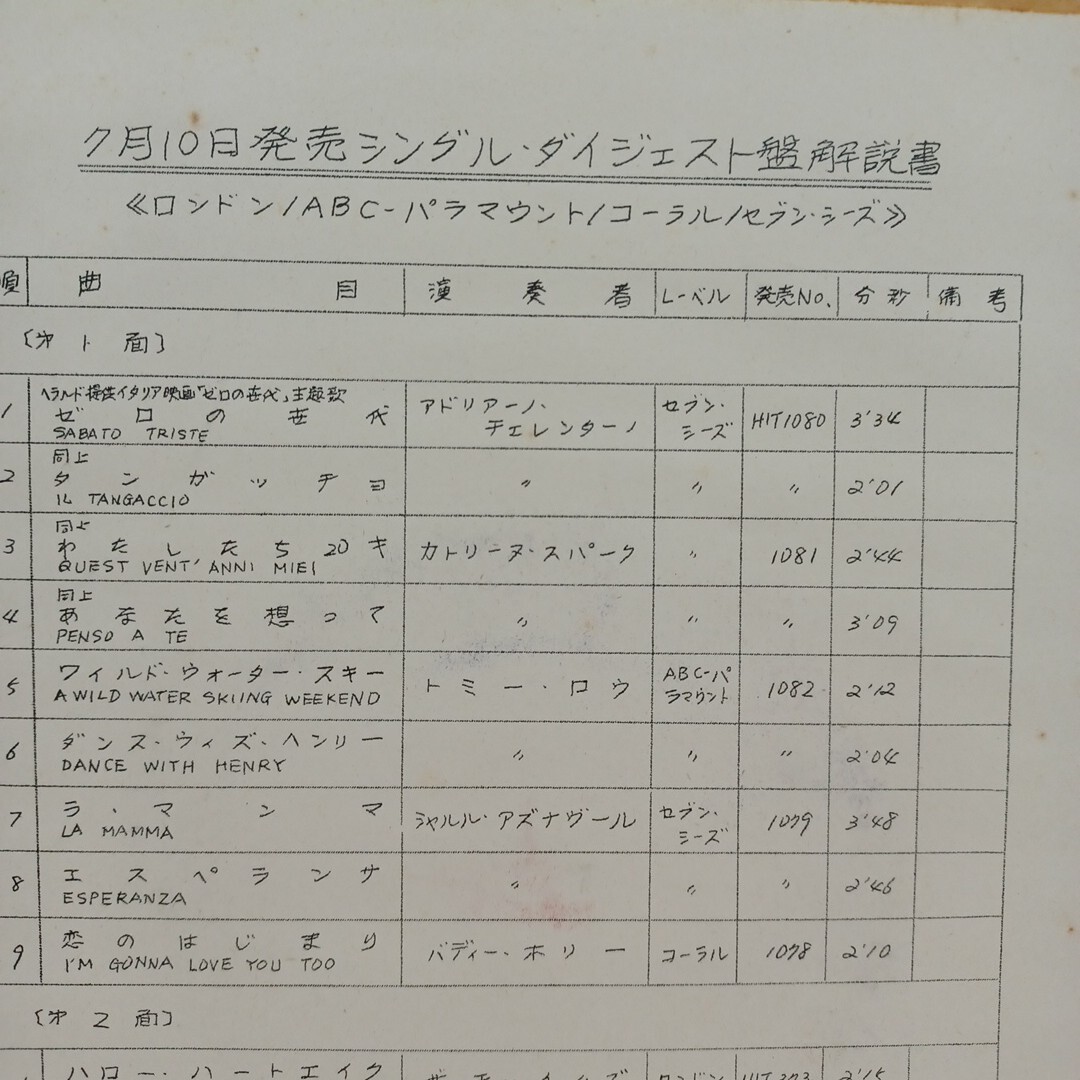 7月10日発売シングル・ダイジェスト盤解説書
《ロンドン/ABC-パラマウント/コーラル/セブン・シーズ》
順 曲目 演奏者 レーベル 発売No. 分秒 備考
〔第1面〕
ヘラルド提供イタリア映画「ゼロの世代」主題歌
1 ゼロの世代 アドリアーノ・ セブン・ HIT1080 3'34
SABATO TRISTE チェレンターノ シーズ
同上
2 タンガッチョ 〃 〃 〃 2'01
IL TANGACCIO
同上
3 わたしたち20才 カトリーヌ・スパーク 〃 1081 2'44
QUEST VENT' ANNI MIEI
同上
4 あなたを想って 〃 〃 〃 3'09
PENSO A TE
5 ワイルド・ウォーター・スキー トミー・ロウ ABC-パ 1082 2'12
A WILD WATER SKIING WEEKEND ラマウント
6 ダンス・ウィズ・ヘンリー 〃 〃 〃 2'04
DANCE WITH HENRY
7 ラ・マンマ シャルル・アズナヴール セブン・ 1079 3'48
LA MAMMA シーズ
8 エスペランサ 〃 〃 〃 2'46
ESPERANZA
9 恋のはじまり バディー・ホリー コーラル 1078 2'10
I'M GONNA LOVE YOU TOO
〔第2面〕
ハロー・ハートエイク ロンドン HIT373 2'15